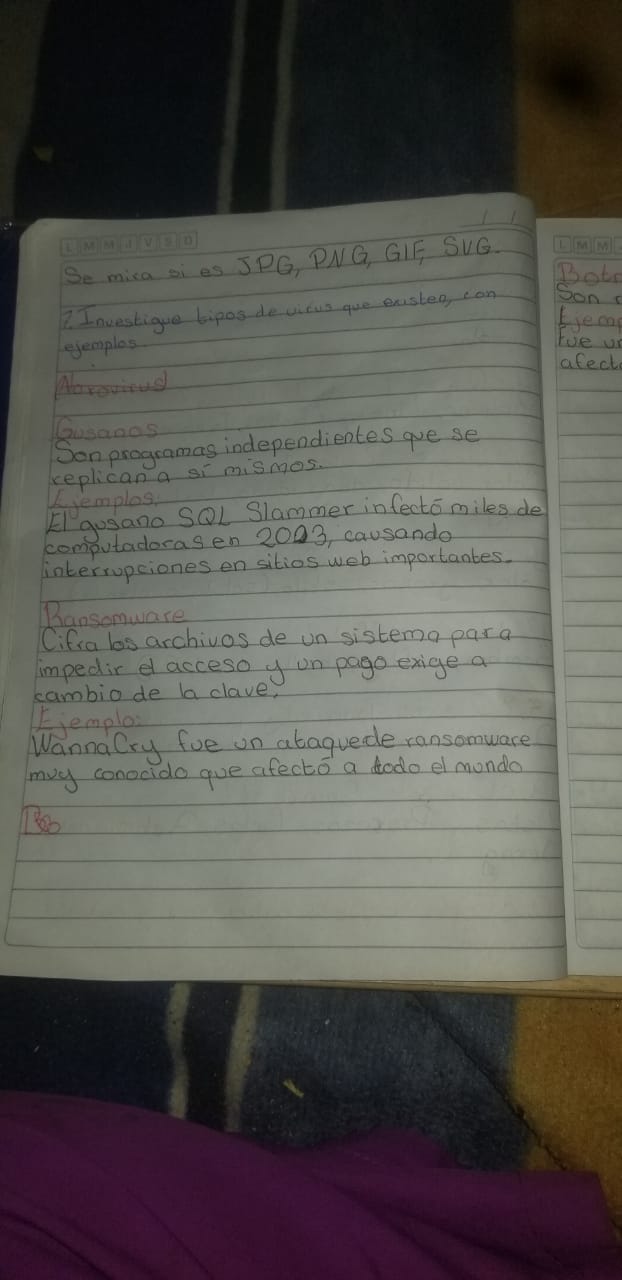 L M M J V S D
Se mira si es JPG, PNG, GIF, SVG.
7. Investigue tipos de virus que existen, con
ejemplos.
Gusanos
Son programas independientes que se
replican a sí mismos.
Ejemplos:
El gusano SQL Slammer infectó miles de
computadoras en 2003, causando
interrupciones en sitios web importantes.
Ransomware
Cifra los archivos de un sistema para
impedir el acceso y un pago exige a
cambio de la clave.
Ejemplo:
WannaCry fue un ataque de ransomware
muy conocido que afectó a todo el mundo
L M M
Son